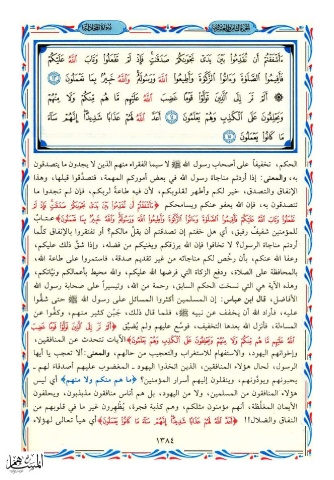 ءَأَشْفَقْتُمْ أَن تُقَدِّمُوا۟ بَيْنَ يَدَىْ نَجْوَىٰكُمْ صَدَقَٰتٍ فَإِذْ لَمْ تَفْعَلُوا۟ وَتَابَ ٱللَّهُ عَلَيْكُمْ
فَأَقِيمُوا۟ ٱلصَّلَوٰةَ وَءَاتُوا۟ ٱلزَّكَوٰةَ وَأَطِيعُوا۟ ٱللَّهَ وَرَسُولَهُۥ وَٱللَّهُ خَبِيرٌۢ بِمَا تَعْمَلُونَ ١٣
أَلَمْ تَرَ إِلَى ٱلَّذِينَ تَوَلَّوْا۟ قَوْمًا غَضِبَ ٱللَّهُ عَلَيْهِم مَّا هُم مِّنكُمْ وَلَا مِنْهُمْ
وَيَحْلِفُونَ عَلَى ٱلْكَذِبِ وَهُمْ يَعْلَمُونَ ١٤ أَعَدَّ ٱللَّهُ لَهُمْ عَذَابًا شَدِيدًا إِنَّهُمْ سَآءَ
مَا كَانُوا۟ يَعْمَلُونَ ١٥
الحكم، تخفيفاً على أصحاب رسول الله ﷺ لا سيما الفقراء منهم الذين لا يجدون ما يتصدقون
به، والمعنى: إذا أردتم مناجاة رسول الله في بعض أموركم المهمة، فتصدقوا قبلها، وهذا
الإنفاق والتصدق، خير لكم وأطهر لقلوبكم، لأن فيه طاعة لربكم، فإن لم تجدوا ما
تتصدقون به، فإن الله يعفو عنكم ويسامحكم ﴿ءَأَشْفَقْتُمْ أَن تُقَدِّمُوا۟ بَيْنَ يَدَىْ نَجْوَىٰكُمْ صَدَقَٰتٍ فَإِذْ لَمْ
تَفْعَلُوا۟ وَتَابَ ٱللَّهُ عَلَيْكُمْ فَأَقِيمُوا۟ ٱلصَّلَوٰةَ وَءَاتُوا۟ ٱلزَّكَوٰةَ وَأَطِيعُوا۟ ٱللَّهَ وَرَسُولَهُۥ وَٱللَّهُ خَبِيرٌۢ بِمَا تَعْمَلُونَ﴾ عتاب
للمؤمنين شفيف رقيق، أي هل خفتم إن تصدقتم أن يقل مالكم؟ أو تفتقروا بالإنفاق كلما
أردتم مناجاة الرسول؟ لا تخافوا فإن الله يرزقكم ويغنيكم من فضله، وإذا شق ذلك عليكم،
وعفا الله عنكم، بأن رخص لكم مناجاته من غير تقديم صدقة، فاستمروا على طاعة الله،
بالمحافظة على الصلاة، ودفع الزكاة التي فرضها الله عليكم، والله محيط بأعمالكم ونياتكم،
وهذه الآية هي التي نسخت الحكم السابق، رحمة من الله، وتيسيراً على صحابة رسول الله
الأفاضل، قال ابن عباس: إن المسلمين أكثروا المسائل على رسول الله ﷺ حتى شقوا
عليه، فأراد الله أن يخفف عن نبيه ﷺ، فلما قال ذلك، جبن كثير منهم، وكفوا عن
المسألة، فأنزل الله بعدها التخفيف، فوسع عليهم ولم يضيق ﴿أَلَمْ تَرَ إِلَى ٱلَّذِينَ تَوَلَّوْا۟ قَوْمًا غَضِبَ
ٱللَّهُ عَلَيْهِم مَّا هُم مِّنكُمْ وَلَا مِنْهُمْ وَيَحْلِفُونَ عَلَى ٱلْكَذِبِ وَهُمْ يَعْلَمُونَ﴾ الآيات تتحدث عن المنافقين،
وإخوانهم اليهود، والاستفهام للاستغراب والتعجيب من حالهم، والمعنى: ألا تعجب يا أيها
الرسول، لحال هؤلاء المنافقين، الذين اتخذوا اليهود ـ المغضوب عليهم أصدقاء لهم ـ
يحبونهم ويوالونهم، وينقلون إليهم أسرار المؤمنين؟ ﴿ما هم منكم ولا منهم﴾ أي ليس
هؤلاء المنافقون من المسلمين، ولا من اليهود، بل هم أناس منافقون مذبذبون، ويحلفون
الأيمان المغلظة، أنهم مؤمنون مثلكم، وهم كذبة فجرة، يُظهرون غير ما في قلوبهم من
النفاق والضلال!! ﴿أَعَدَّ ٱللَّهُ لَهُمْ عَذَابًا شَدِيدًا إِنَّهُمْ سَآءَ مَا كَانُوا۟ يَعْمَلُونَ﴾ أي هيأ تعالى لهؤلاء
١٣٨٤